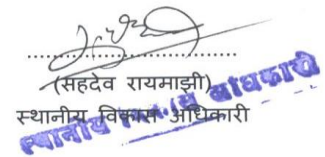 (सहदेव रायमाझी)
स्थानीय विकास अधिकारी
स्थानीय विकास अधिकारी